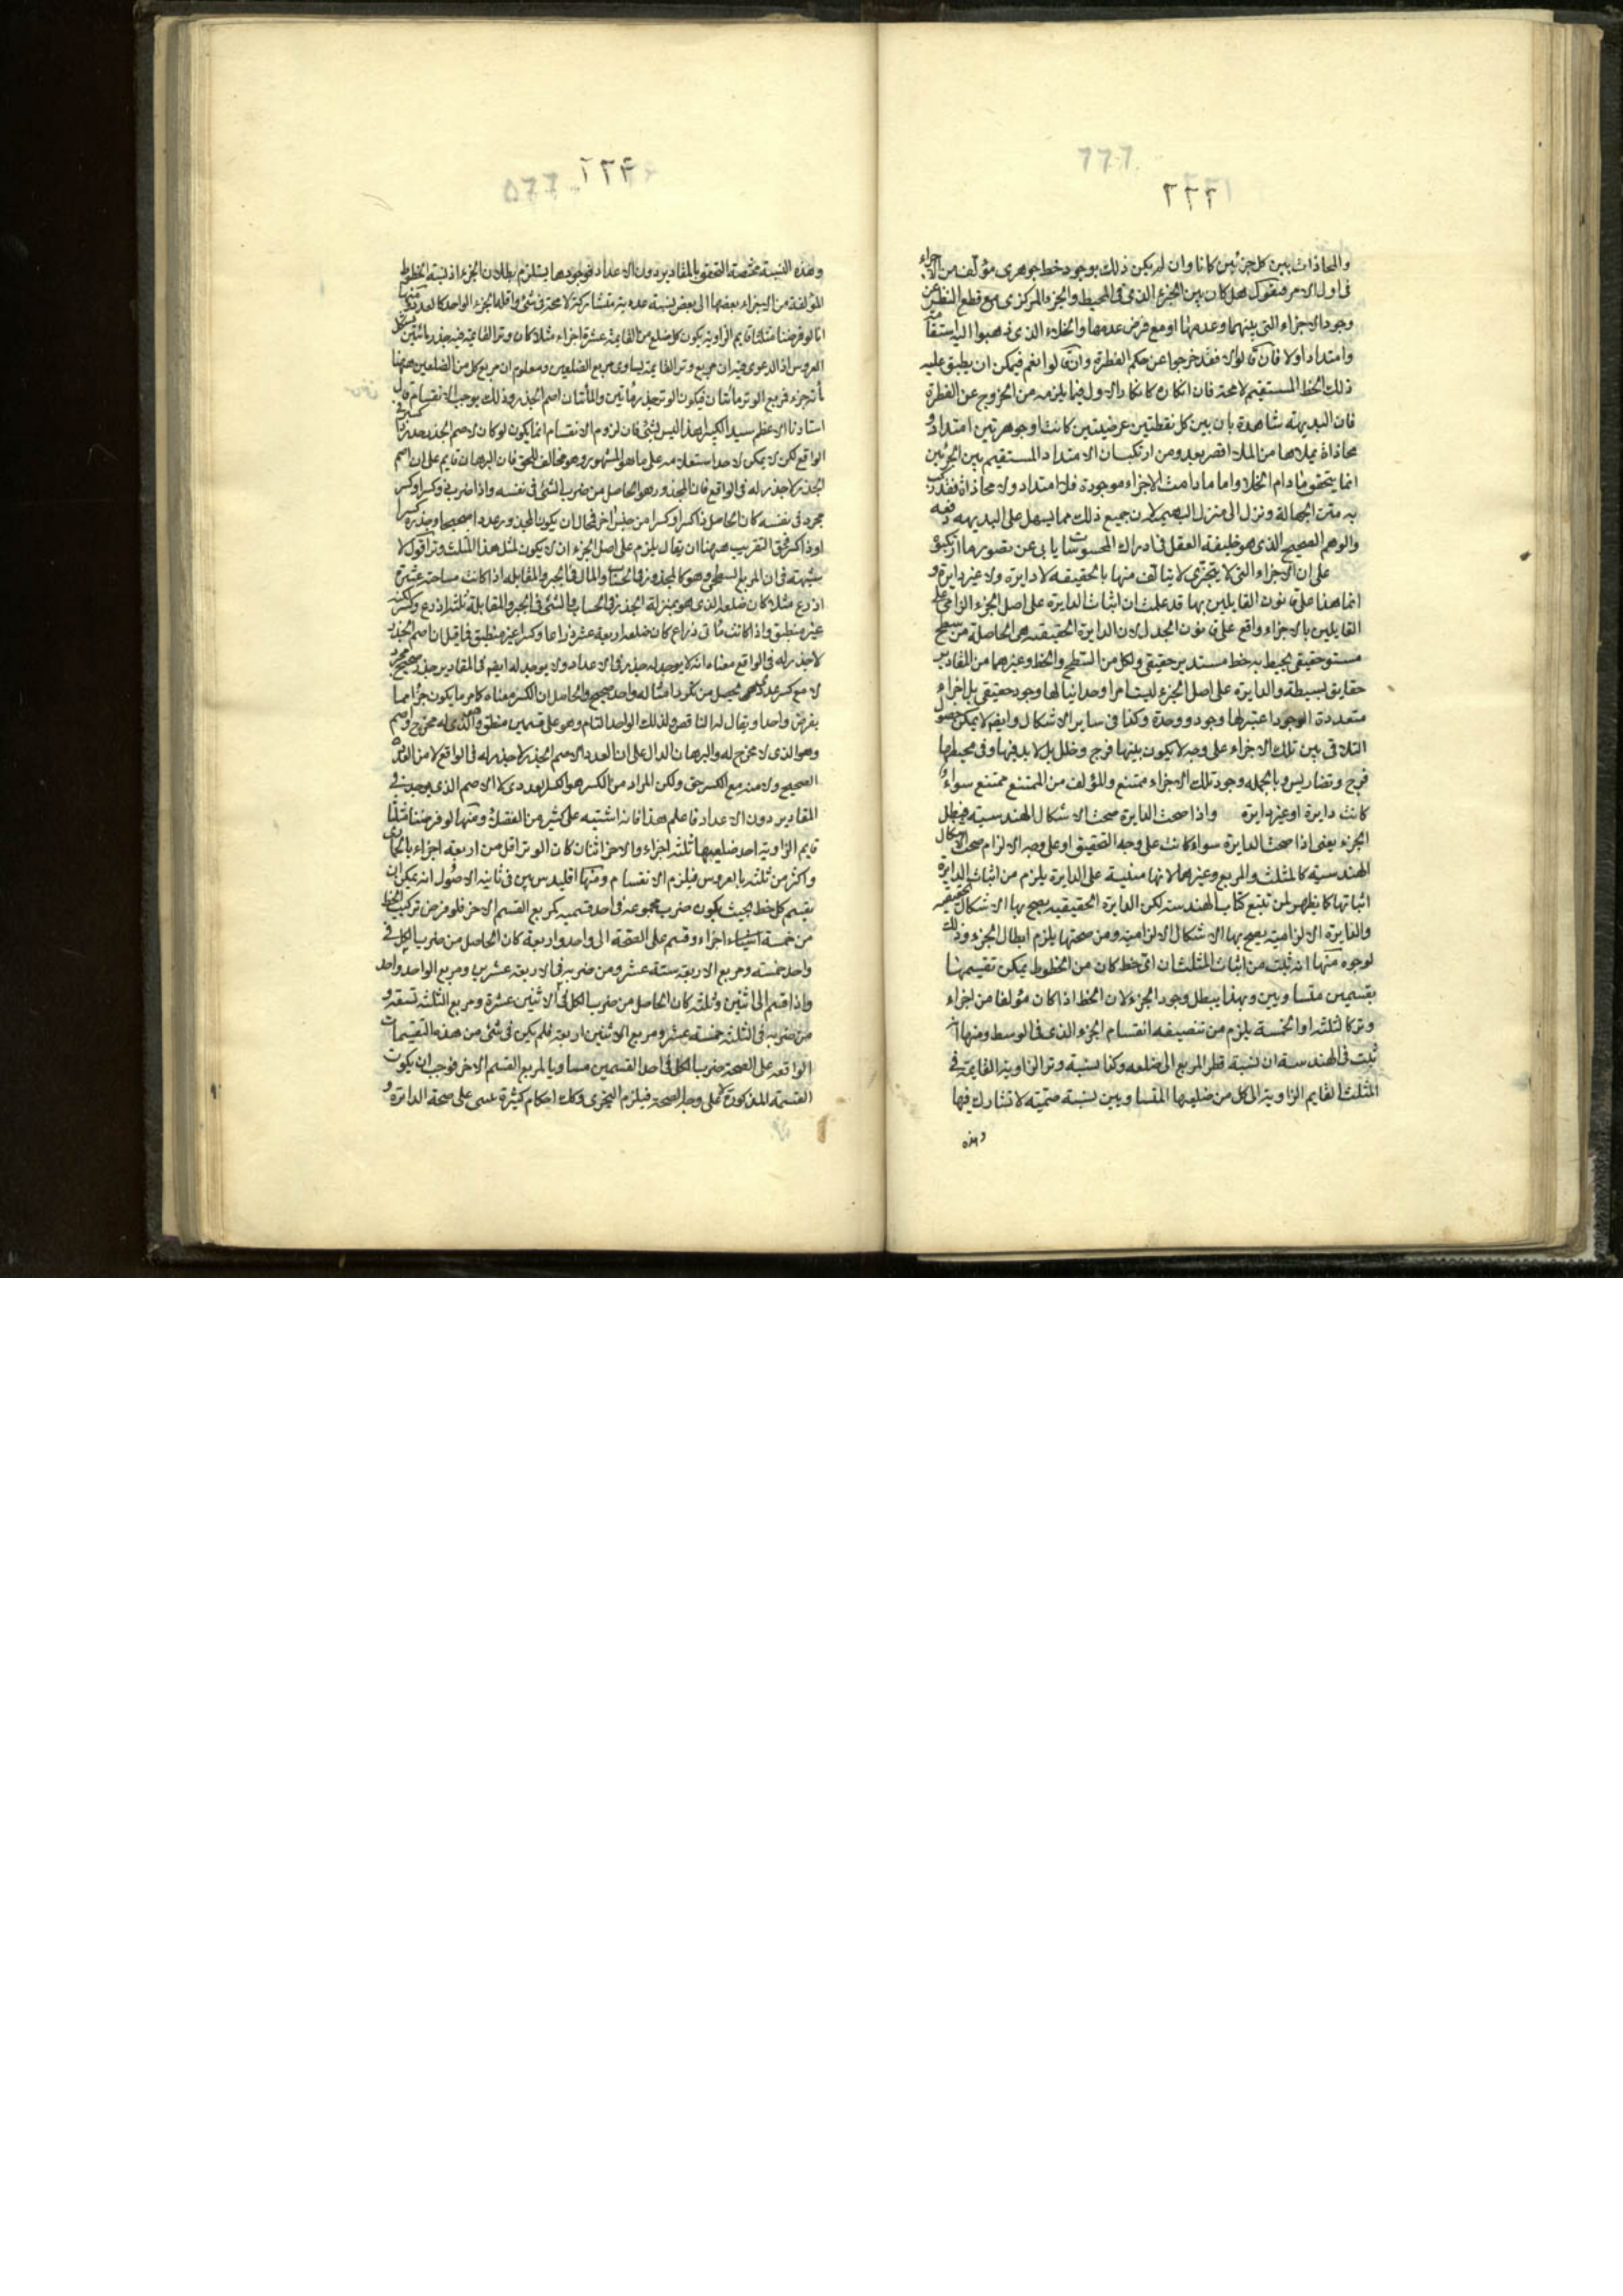 ٢٢٢
والمحاذات بين كل جزئين كانا وان لم يكن ذلك بوجود خط جوهرى مؤلف من الاجزاء
فى اول الامر فنقول هل كان بين الجزء الذى فى المحيط والجزء المركزى مع قطع النظر عن
وجود الاجزاء التى بينهما وعدمها او مع فرض عدمها والخلاء الذى ذهبوا اليه
وامتداد اولا فان قالوا لا فقد خرجوا عن حكم الفطرة وان قالوا نعم فيمكن ان يطبق عليه
ذلك الخط المستقيم لا محة فان انكاره كانكار الاول فيما يلزمه من الخروج عن الفطرة
فان البديهة شاهدة بان بين كل نقطتين عرضيتين كانت او جوهرتين امتداد و
محاذاة يملاها من الملاء اقصر بعد ومن ارتكب ان الامتداد المستقيم بين الجزئين
انما يتحقق مادام الخلا واما مادامت الاجزاء موجودة فلا امتداد ولا محاذاة فقد ركب
به متن الجهالة ونزل الى منزل البهيمة لان جميع ذلك مما يسهل على البديهة دفعه
والوهم الصحيح الذى هو خليفة العقل فى ادراك المحسوسات يابى عن تصور ما ارتكبوه
على ان الاجزاء التى لا يتجزى لا يتالف منها بالحقيقة لا دايرة ولا غير دايرة و
انما هذا على قانون القايلين بها قد علمت ان اثبات الدايرة على اصل الجزء الزامى على
القايلين بالاجزاء واقع على قانون الجدل لان الدايرة الحقيقية هى الحاصلة من سطح
مستو حقيقى يحيط به خط مستدير حقيقى ولكل من السطح والخط وغيرهما من المقادير
حقايق بسيطة والدايرة على اصل الجزء ليست امرا وحدانيا لها وجود حقيقى بل اجزاء
متعددة الوجود اعتبر لها وجود ووحدة وكذا فى ساير الاشكال وايضا لا يمكن حصول
التلاقى بين تلك الاجزاء على وجه لا يكون بينها فرج وخلل بل لابد فيها وفى محيطها
فرج وتضاريس وبالجمله وجود تلك الاجزاء ممتنع والمؤلف من الممتنع ممتنع سواء
كانت دايرة او غير دايرة واذا صحت الدايرة صحت الاشكال الهندسية فيبطل
الجزء يعنى اذا صحت الدايرة سواء كانت على وجه التحقيق او على وجه الالزام صحت الاشكال
الهندسية كالمثلث والمربع وغيرهما لانها مبنية على الدايرة يلزم من اثبات الدايرة
اثباتها كما يظهر لمن تتبع كتاب الهندسة لكن الدايرة الحقيقيه يصح بها الاشكال الحقيقيه
والدايرة الالزامية يصح بها الاشكال الالزامية ومن صحتها يلزم ابطال الجزء وذلك
لوجوه منها انه ثبت من اثبات المثلث ان اى خط كان من الخطوط يمكن تقسيمها
بقسمين متساويين وبهذا يبطل وجود الجزء لان الخط اذا كان مؤلفا من اجزاء
وتر كالثلثه او الخمسة يلزم من تنصيفه انقسام الجزء الذى فى الوسط ومنها انه
ثبت فى الهندسة ان نسبة قطر المربع الى ضلعه وكذا نسبة وتر الزاوية القايمة فى
المثلث القايم الزاوية الى كل من ضلعيها المتساويين نسبة صمية لا تشارك فيها
وهذه

وهذه النسبة مختصة التحقق بالمقادير دون الاعداد فوجودها يستلزم بطلان الجزء اذ نسبة الخطوط
المؤلفة من الاجزاء بعضها الى بعض نسبة عددية متشاركة لا محة فى شئ واقله الجزء الواحد كالعدد ومنها
انا لو فرضنا مثلثا قايم الزاوية يكون كل ضلع من القايمة عشرة اجزاء مثلا كان وتر القايمة فيه جذر مائتين بشكل
العروس اذ الدعوى فيه ان مربع وتر القايمة يساوى مربع الضلعين ومعلوم ان مربع كل من الضلعين ههنا
مائة جزء فمربع الوتر مائتان فيكون الوتر جذر مائتين والمائتان اصم الجذر وذلك يوجب الانقسام قال
استادنا الاعظم سيد الكبراء هذا ليس بشئ فان لزوم الانقسام انما يكون لو كان لاصم الجذر جذر
الواقع لكن لا يمكن لاحد استعلامه على ما هو المشهور وهو مخالف للحق فان البرهان قايم على ان اصم
الجذر لا جذر له فى الواقع فان المجذور هو الحاصل من ضرب الشئ فى نفسه واذا ضرب ذو كسر او كسر
مجرد فى نفسه كان الحاصل ذا كسر او كسرا من جنس اخر فحال ان يكون المجذور عددا صحيحا وجذره كسرا
او ذا كسر فحق التقريب ههنا ان يقال يلزم على اصل الجزء ان لا يكون لمثل هذا المثلث وتر اقول لا
شبهة فى ان المربع السطحى وهو كالمجذور فى الحساب والمال فى الجبر والمقابلة اذا كانت مساحته عشرة
اذرع مثلا كان ضلعه الذى هو بمنزلة الجذر فى الحساب والشئ فى الجبر والمقابلة ثلثة اذرع وكسر
غير منطق واذا كانت مائتى ذراع كان ضلعه اربعة عشر ذراعا وكسرا غير منطق فما قيل ان اصم الجذر
لا جذر له فى الواقع معناه انه لا يوجد له جذر فى الاعداد ولا يوجد له ايضا فى المقادير جذر صحيح مجرد
بفرض واحدا ويقال له الناقص ولذلك الواحد التام وهو على قسمين منطق وهو الذى له مخرج واصم
وهو الذى لا مخرج له والبرهان الدال على ان العدد الاصم الجذر لا جذر له فى الواقع لا من العدد
الصحيح ولا منه مع الكسر حق ولكن المراد من الكسر هو الكسر العددى لا الاصم الذى يوجد فى
المقادير دون الاعداد فاعلم هذا فانه اشتبه على كثير من الفضلاء ومنها لو فرضنا مثلثا
قايم الزاوية احد ضلعيها ثلثة اجزاء والاخر اثنان كان الوتر اقل من اربعة اجزاء بالحمارى
واكثر من ثلثة بالعروس فيلزم الانقسام ومنها اقليدس بين فى ثانية الاصول انه يمكن ان
يقسم كل خط بحيث يكون ضرب مجموعه فى احد قسميه كمربع القسم الاخر فلو فرض تركيب الخط
من خمسة اجزاء وقسم على الصحة الى واحد واربعة كان الحاصل من ضرب الكل فى
واحد خمسة ومربع الاربعة ستة عشر ومن ضربه فى الاربعة عشرين ومربع الواحد واحد
واذا قسم الى اثنين وثلثة كان الحاصل من ضرب الكل فى الاثنين عشرة ومربع الثلثة تسعة و
من ضربه فى الثلثة خمسة عشر ومربع الاثنين اربعة فلم يكن فى شئ من هذه التقسيمات
الواقعه على الصحة ضرب الكل فى احد القسمين مساويا لمربع القسم الاخر فوجب ان يكون
القسمة المذكورة لا على وجه الصحة فيلزم التجزى وتلك احكام كثيرة تبتنى على صحة الدايرة و